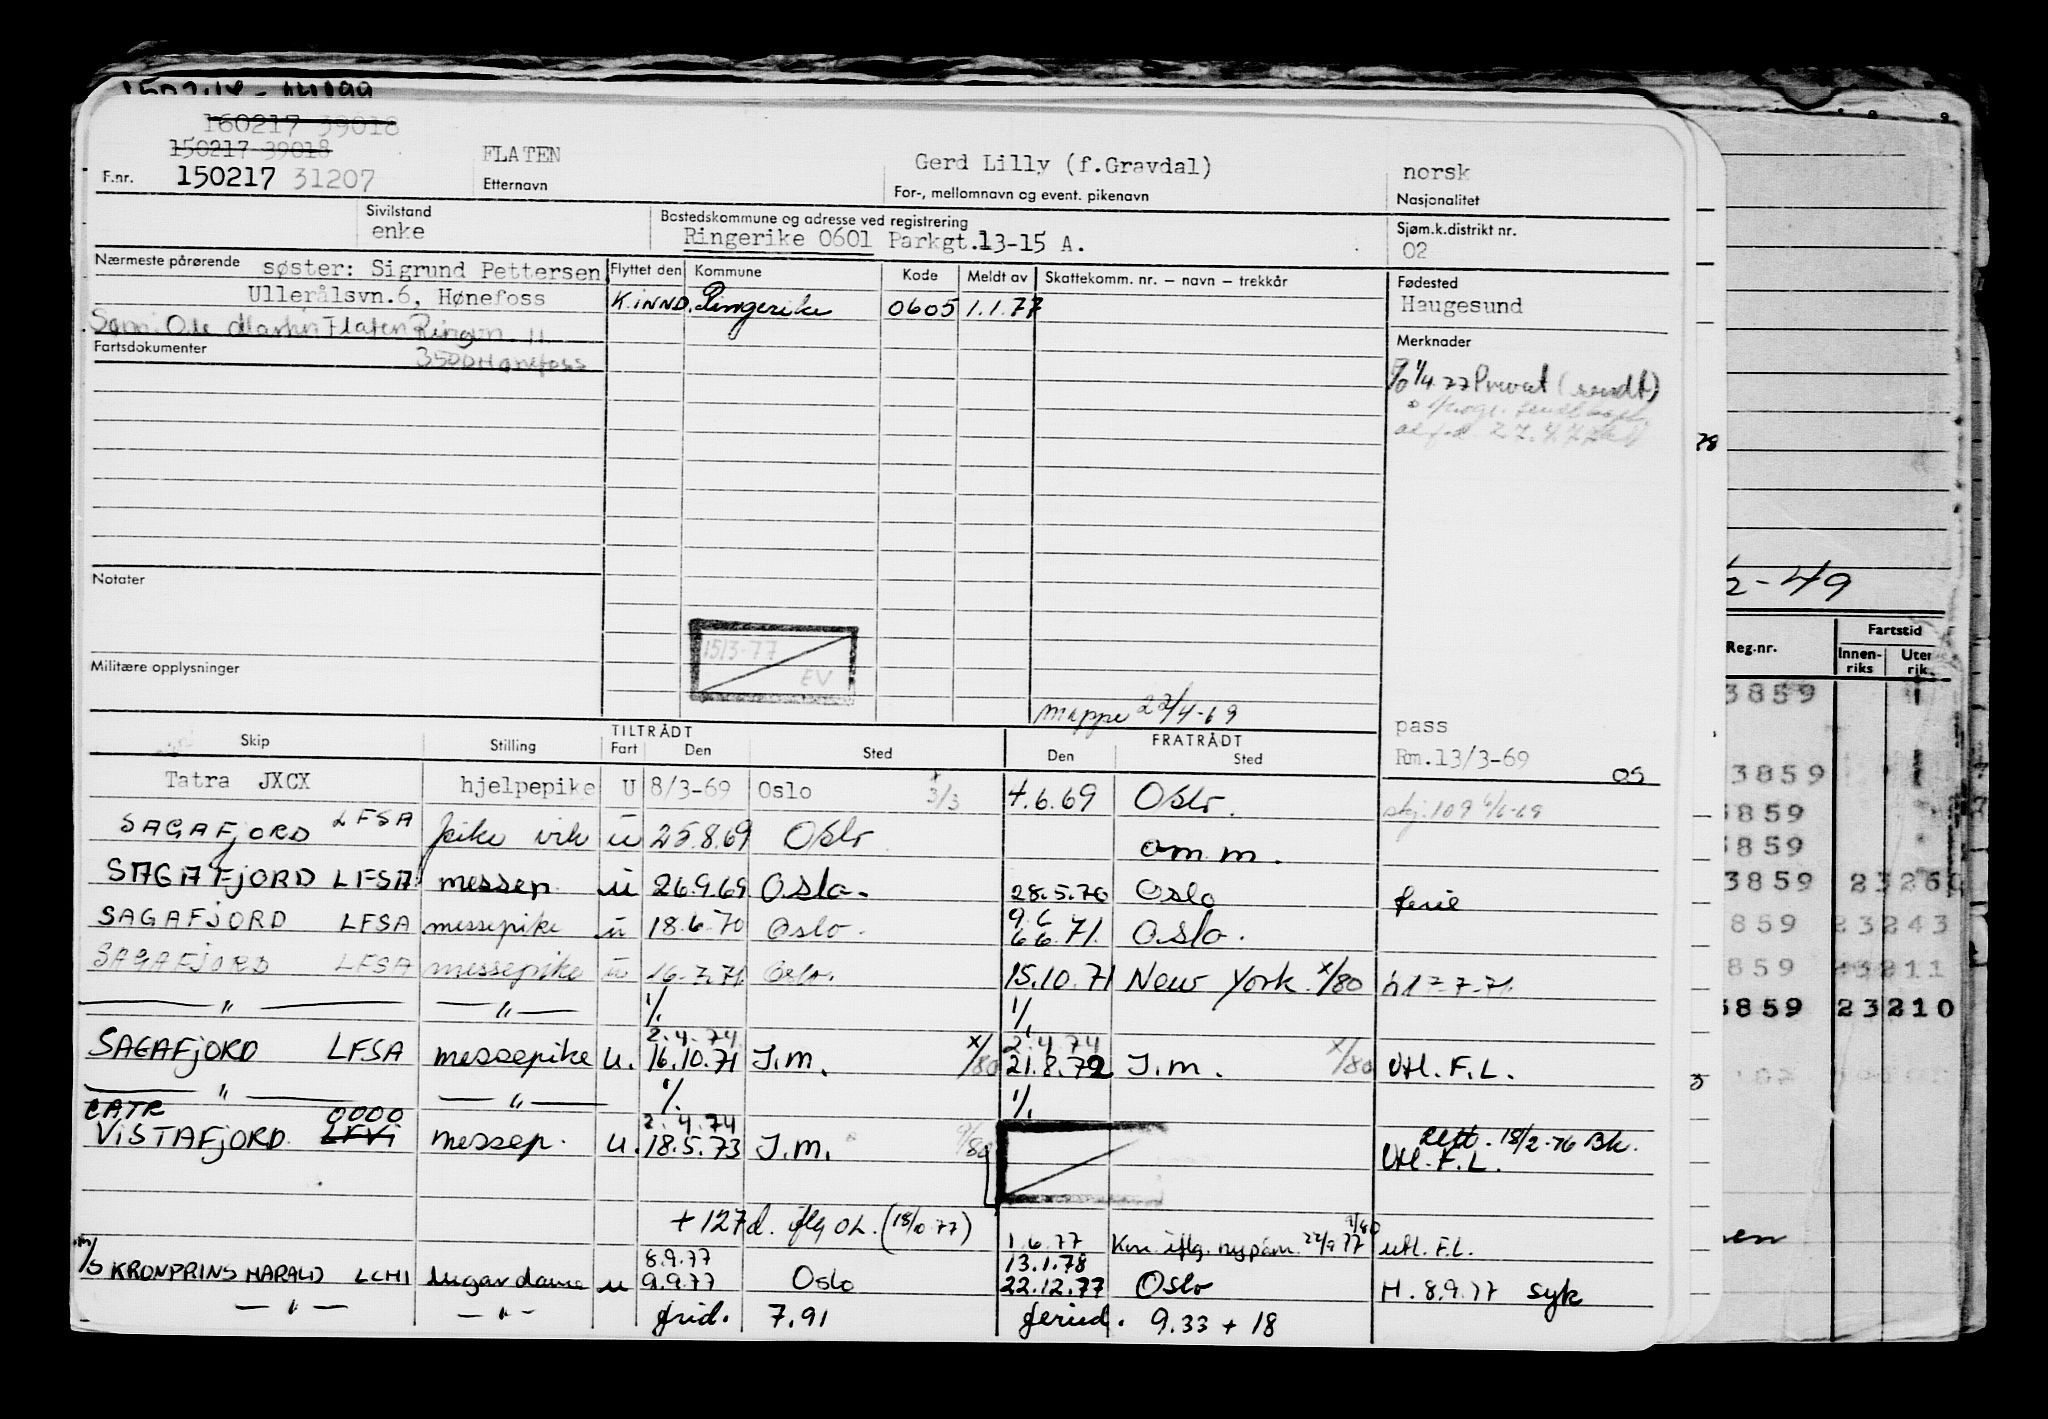 160217 39018
150217 39018
F.nr. 150217 31207
FLATEN
Etternavn
Gerd Lilly (f.Gravdal)
For-, mellomnavn og event. pikenavn
norsk
Nasjonalitet
Sivilstand
enke
Bostedskommune og adresse ved registrering
Ringerike 0601 Parkgt.13-15 A.
Sjøm.k.distrikt nr.
02
Nærmeste pårørende søster: Sigrund Pettersen
Ullerålsvn.6, Hønefoss
Flyttet den Kommune Kode Meldt av Skattekomm. nr. — navn — trekkår
K.INND. Ringerike 0605 1.1.77
Fødested
Haugesund
Ole Martin Flaten
Fartsdokumenter 3500 Hønefoss
Merknader
1/4.77 Privat (sendt)
Notater
15/3-77
EV
Militære opplysninger
mappe 22/4-69
pass
Rm.13/3-69
OS
Skip Stilling TILTRÅDT Fart Den Sted FRATRÅDT Den Sted
Tatra JXCX hjelpepike U 8/3-69 Oslo 3/3 4.6.69 Oslo.
SAGAFJORD LFSA pike vik u 25.8.69 Oslo am.m.
SAGAFJORD LFSA messep. u 26.9.69 Oslo. 28.5.70 Oslo ferie
SAGAFJORD LFSA messepike u 18.6.70 Oslo. 9.6 6.6.71. Oslo.
SAGAFJORD LFSA messepike u 16.7.71 Oslo. 15.10.71 New York. x/80 h 17-7-71.
— " — — " — 1/. 1/.
2.4.74 2.4.74
SAGAFJORD LFSA messepike u. 16.10.71 J.m. x/80 21.8.72 J.m. x/80 Utl. F.L.
— " — — " — 1/. 1/.
0000 2.4.74
VISTAFJORD. LFVI messep. u. 18.5.73 J.m. 9/80 rett. 18/2-76 Bk.
Utl. F.L.
+ 127d. iflg OL. (18/10.77)
1.6.77 22/9 77 utl. F.L.
8.9.77 13.1.78
m/s KRONPRINS HARALD LCHI lugardame u 9.9.77 Oslo 22.12.77 Oslo H. 8.9.77 syk
— " — — " — frid. 7.91 feried. 9.33 + 18
78
1/2-49
Reg.nr. Fartstid
Innen-riks Uten
rik
3859
3859
3859
3859
3859 23260
859 23243
859 23211
3859 23210